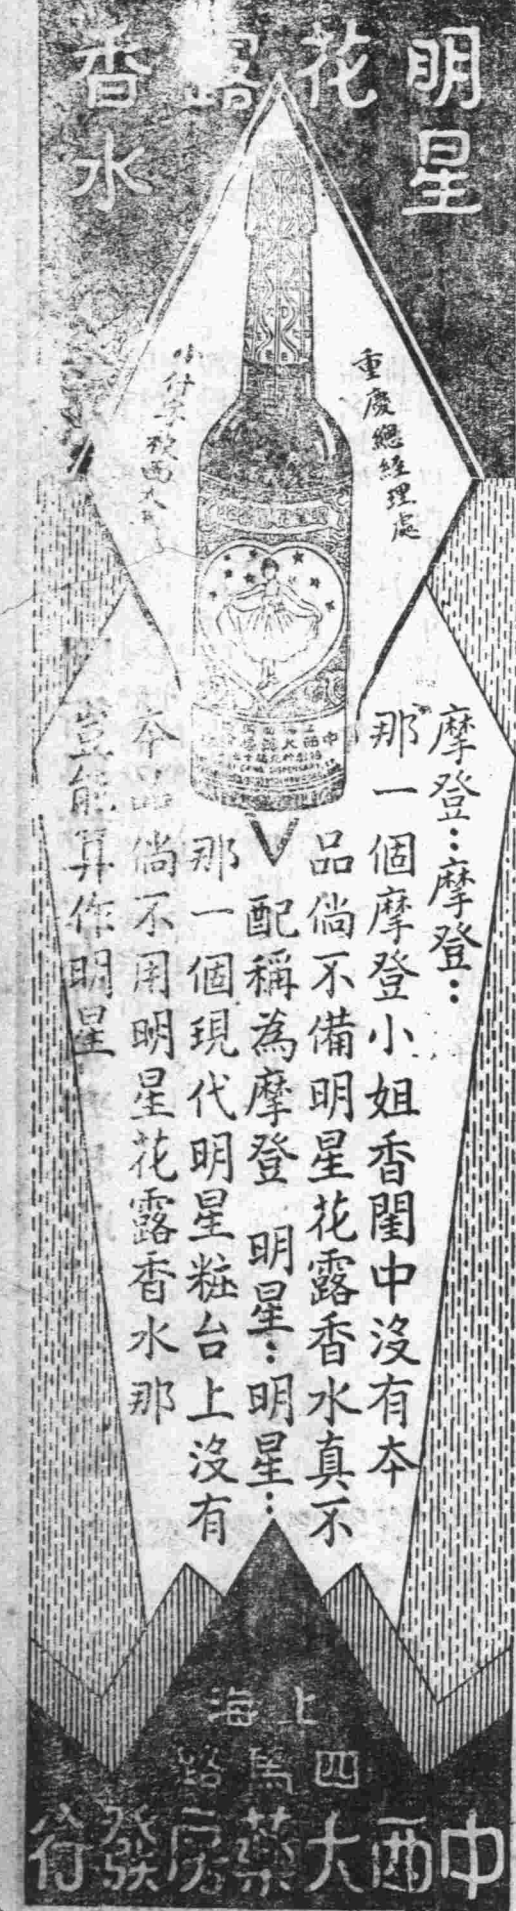 明星花露香水
重慶總經理處
摩登：摩登：
那一個摩登小姐香閨中沒有夲
品倘不備明星花露香水真不
配稱為摩登 明星：明星：
那一個現代明星粧台上沒有
夲品倘不用明星花露香水那
豈能算作明星
上海
四馬路
中西大藥房發行